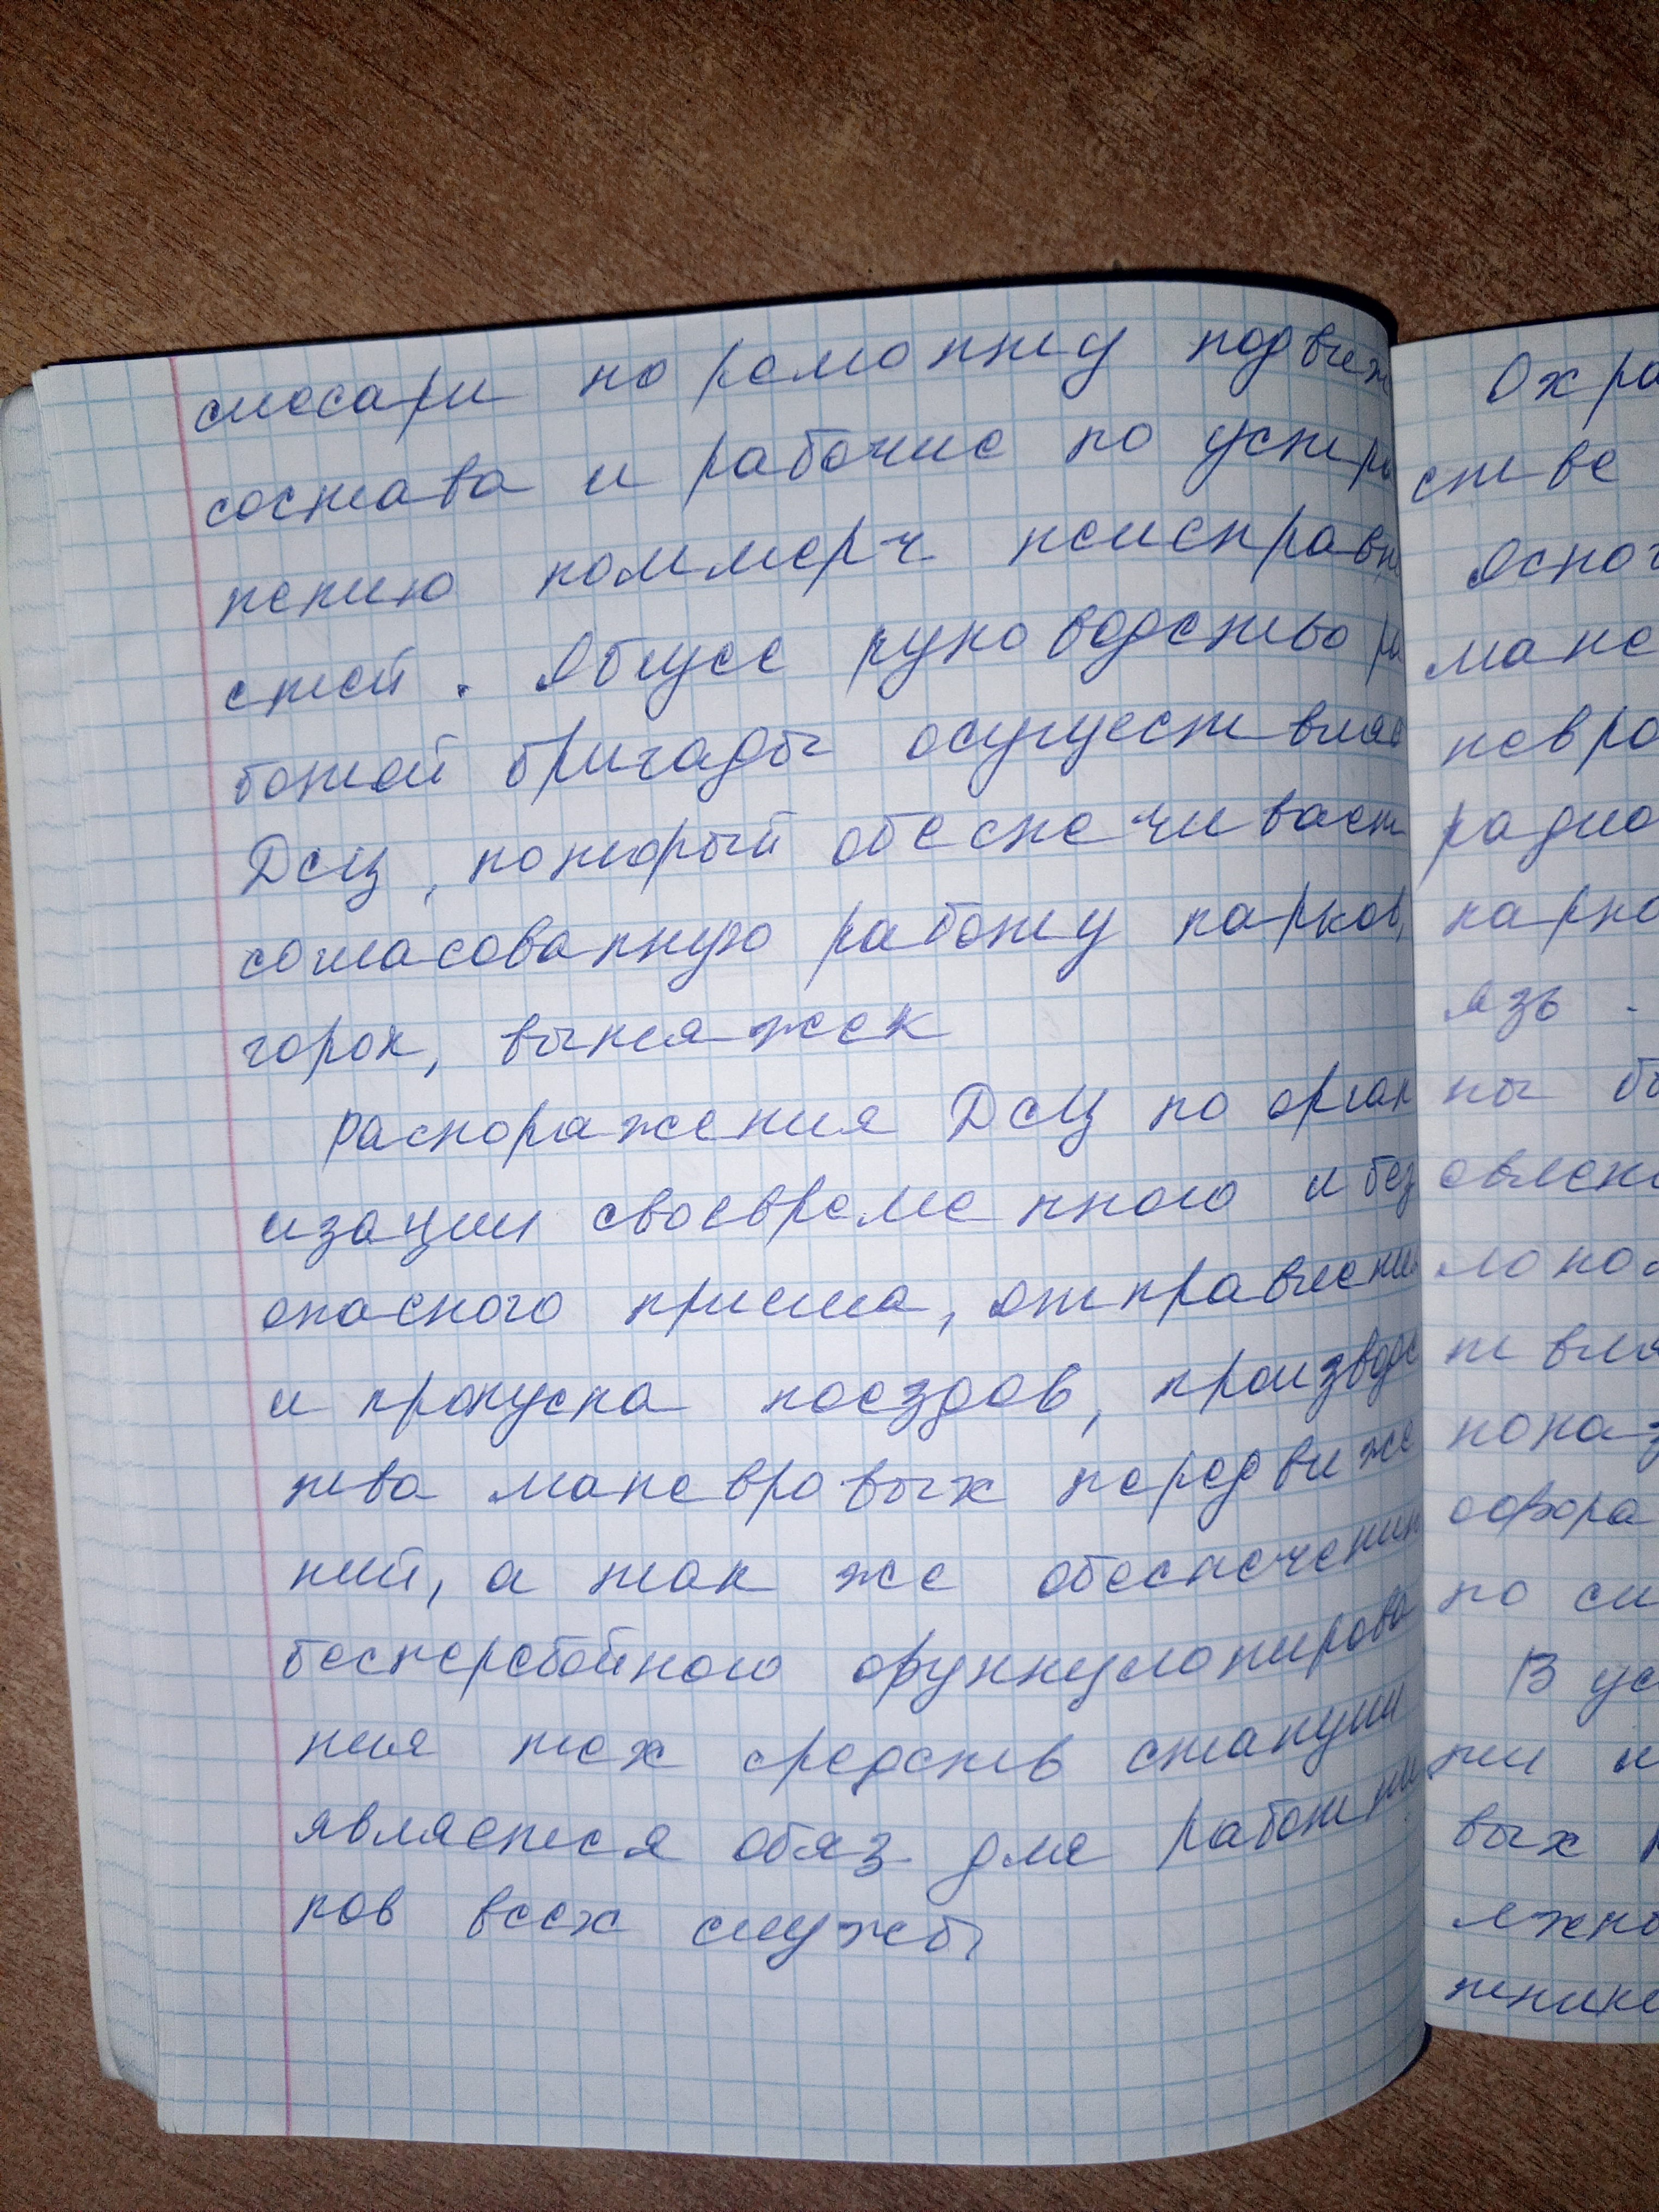 слесари по ремонту подвиж
состава и рабочие по устра
нению коммерч неисправно
стей. Общее руководство ра
ботой бригады осуществляе
ДСЦ, который обеспечивает
согласованную работу парков,
горок, вытяжек
Распоряжения ДСЦ по орган
изации своевременного и без
опасного приема, отправлени
и пропуска поездов, производс
тва маневровых передвиже
ний, а так же обеспечения
бесперебойного функционирова
ния тех средств станции
является обяз для работни
ков всех службы
Охра
стве
Основ
мане
невро
радио
парко
язь
ны бы
овлен
локо
т вля
пока
офора
по си
В ус
ти и
вых
ежно